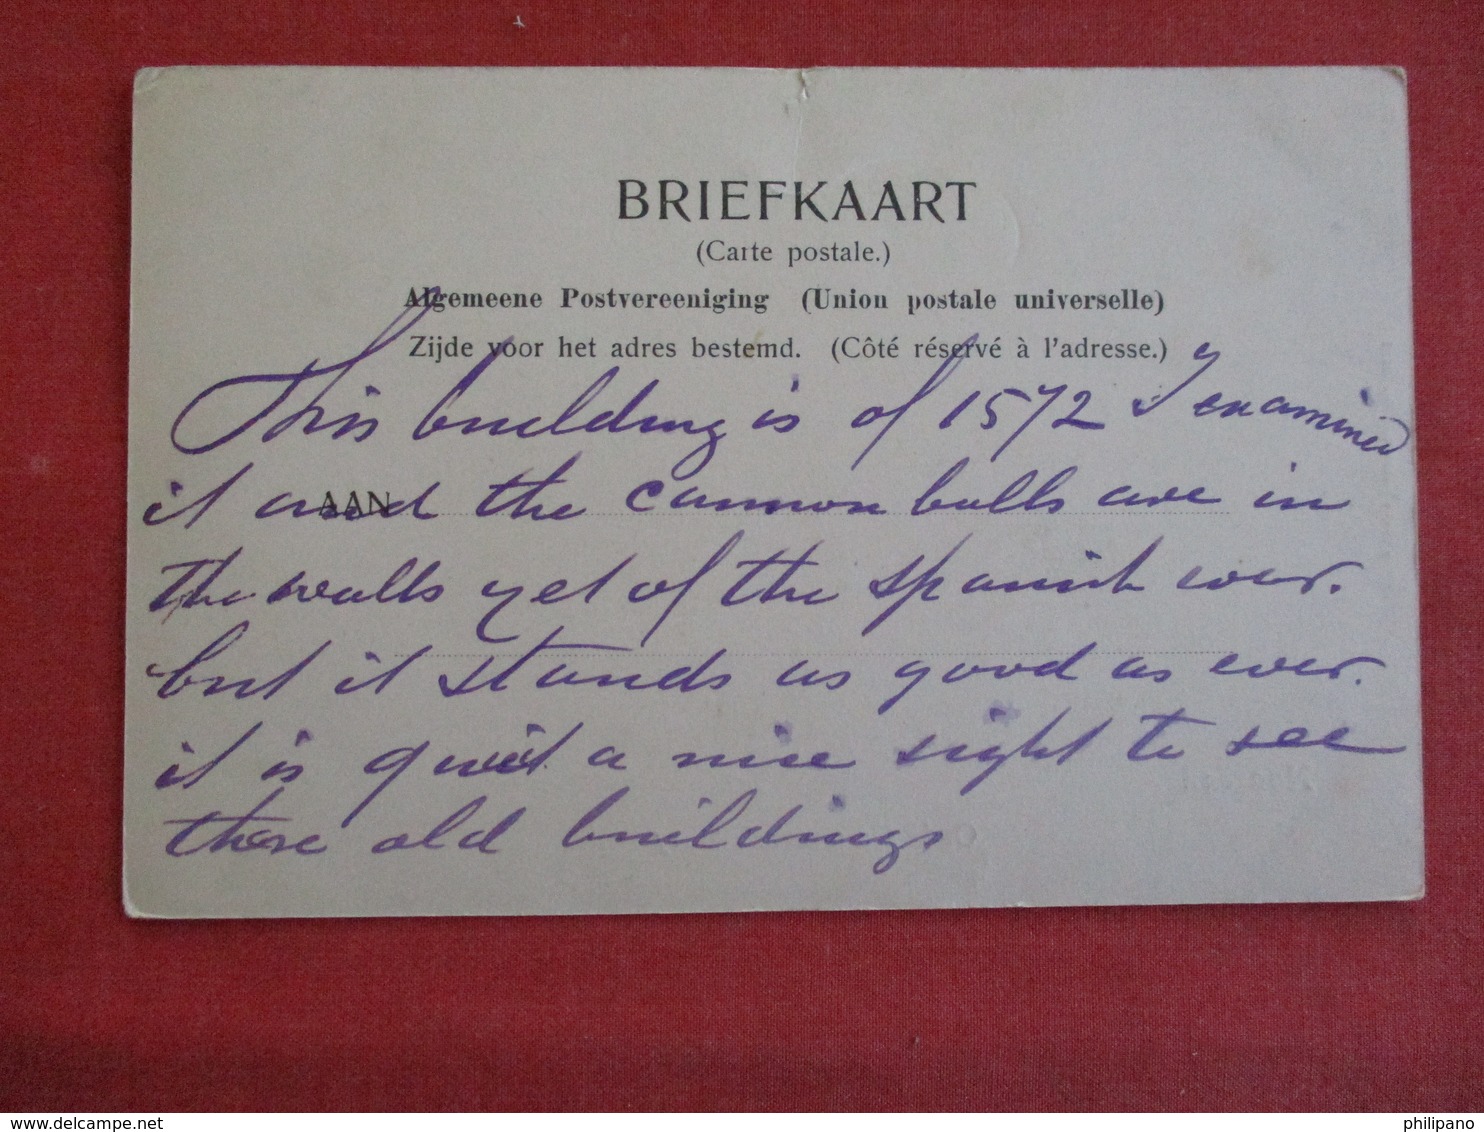 BRIEFKAART
(Carte postale.)
Algemeene Postvereeniging (Union postale universelle)
Zijde voor het adres bestemd. (Côté réservé à l'adresse.)
This building is of 1572 I examined
AAN
it and the cannon balls are in
the walls yet of the Spanish war.
but it stands as good as ever.
it is quit a nice sight to see
these old buildings
www.delcampe.net
philipano